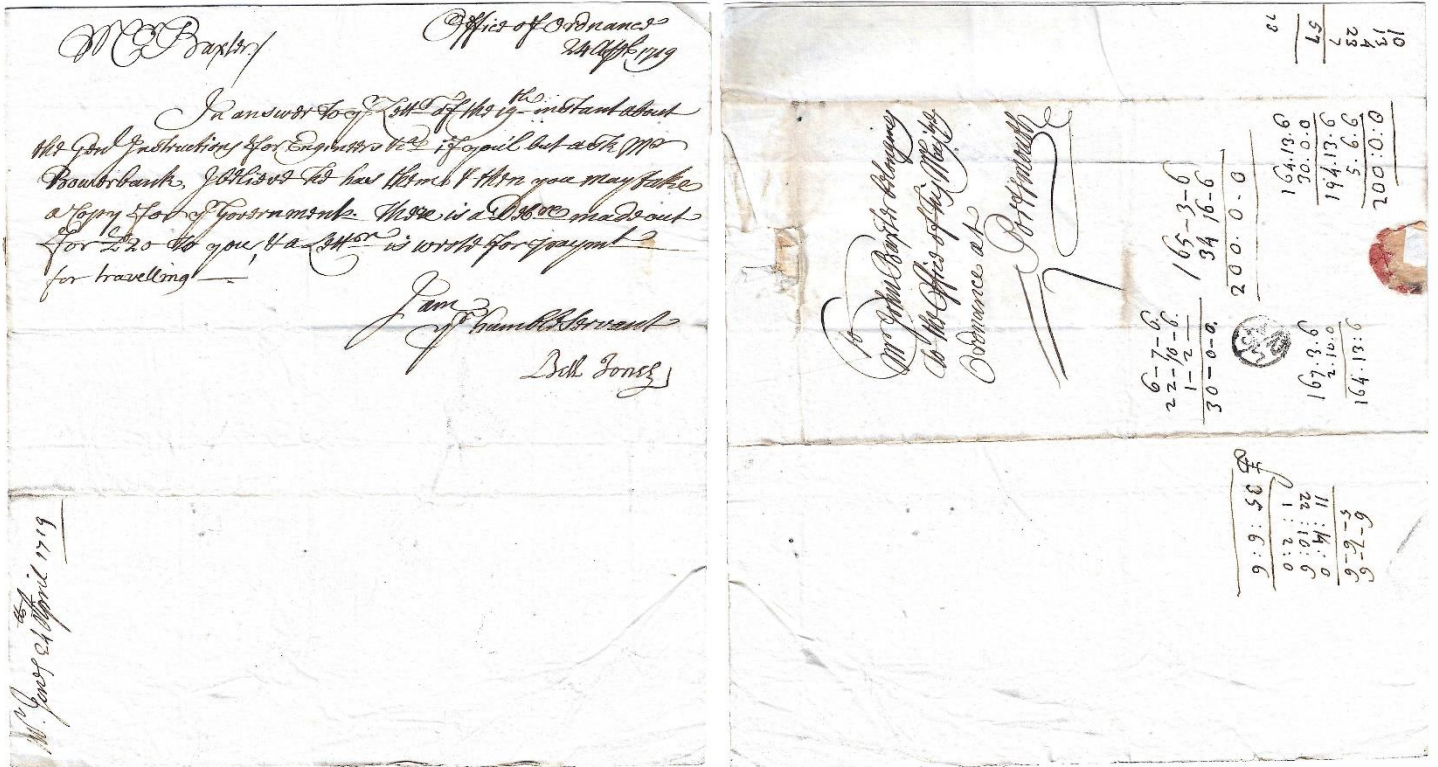 Mr Baxter/
Office of Ordnance
24 Aprl 1719
In answer to yr Lettr of the 19th instant about
the Genl Instructions for Engineers &ca if youl but ask Mr
Bowerbank, I believe he has them & then you may take
a Copy for yr Government. There is a Debre made out
for £20 to you, & a Lettr is wrote for paymt
for travelling —
I am
yr humble Servant
Jones
Mr. Jones 24th April 1719
To
Mr John Baxter belonging
to the Office of his Maj
Ordnance at
Portsmouth
10
13
4
23
7
57
164.13.6
30.0.0
194.13.6
5.6.6
200:0:0
165-3-6
34-16-6
200.0.0
6-7-6
22-10-6
1-2-
30-0-0
167:3.6
2.10.0
164.13:6
6-7-6
5-6-6
11:14:0
22:10:6
1:2:0
35:6:6